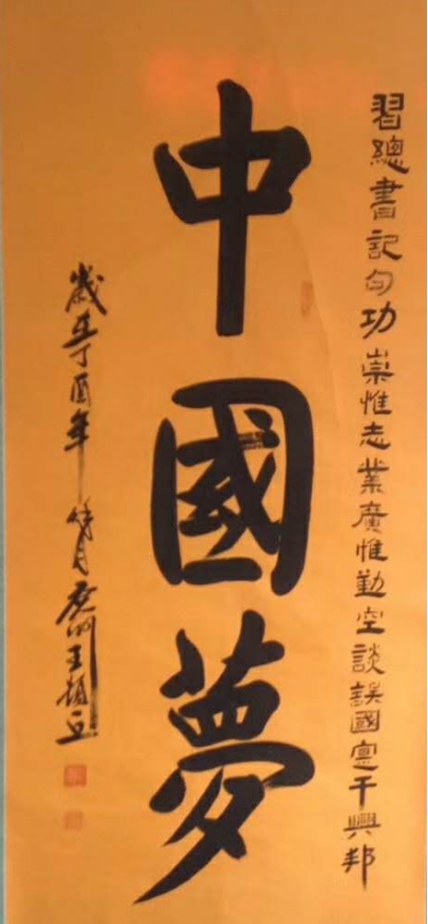 習總書記句功崇惟志業廣惟勤空談誤國實干興邦
中國夢
歲在丁酉年 月 王